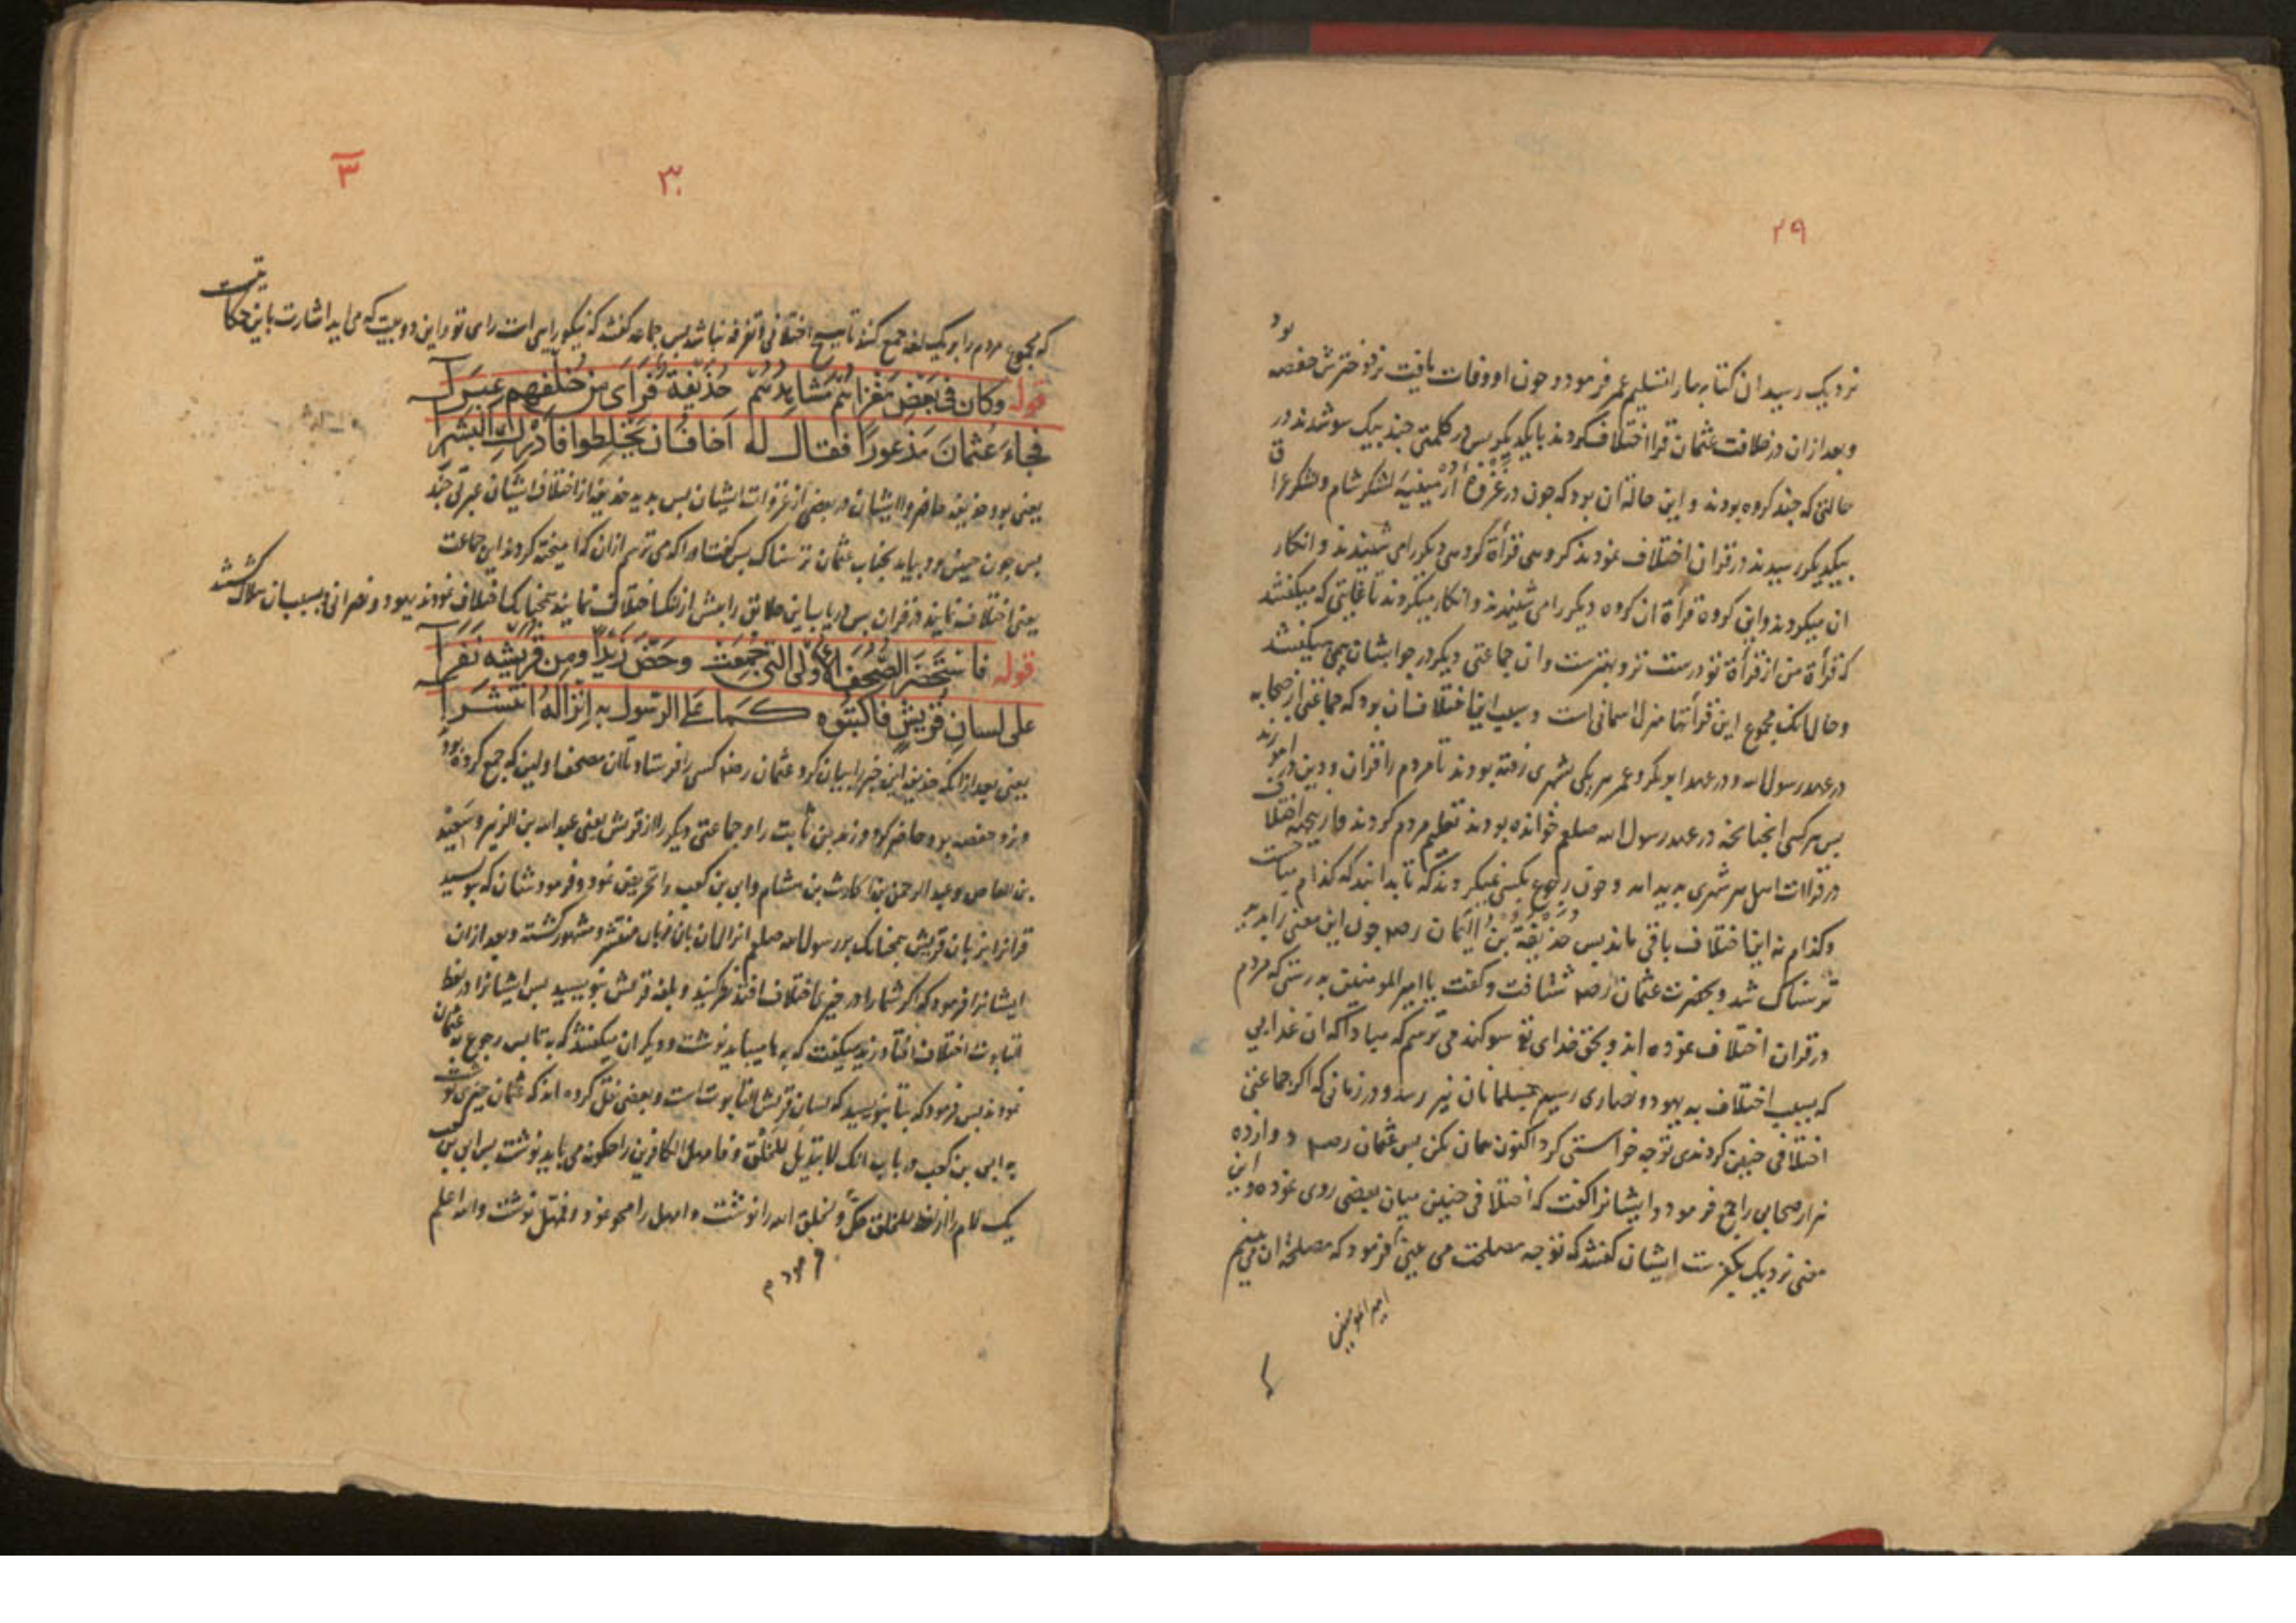 ٢٩
نزدیک رسید ان کتابها را تسلیم عمر فرمود و چون او وفات یافت نزد دخترش حفصه بود
و بعد ازان در خلافت عثمان قرا اختلاف کردند با یکدیگر پس در کلمتی چند بیک سو شدند در
حالتی که چند کروه بودند و این حالة ان بود که چون در غزوهٔ ارمینیه لشکر شام و لشکر عراق
بیکدیکر رسیدند در قران اختلاف نمودند کروهی قرأة کروهی دیکر را می شنیدند و انکار
ان میکردند و این کروه قرأة ان کروه دیکر را می شنیدند و انکار میکردند تا غایتی که میکفتند
که قرأة من از قرأة تو درست تر و بهترست و ان جماعتی دیکر در جواب شان همی میکفتند
و حال انک مجموع این قرأتها منزل اسمانی است و سبب این اختلاف ان بود که جماعتی از صحابه
در عهد رسول الله و در عهد ابو بکر و عمر هر یکی بشهری رفته بودند تا مردم را قران و دین در اموزند
پس هر کسی انچنانچه در عهد رسول الله صلعم خوانده بودند تعلیم مردم کردند اختلاف
در قراات اهل هر شهری بدید امد و چون رجوع بکسی نمیکردند که تا بدانند که کدام
و کدام نه این اختلاف باقی ماند پس حذیفة بن الیمان رضه چون این معنی را بدید
ترسناک شد و بحضرت عثمان رضه شتافت و کفت یا امیر المومنین بدرستی که مردم
در قران اختلاف نموده اند و بحق خدای تع سوکند می ترسم که مبادا که ان عذابی
که بسبب اختلاف به یهود و نصاری رسید بمسلمانان نیز رسد و در زمانی که اکر جماعتی
اختلافی چنین کردندی توجه خواستی کرد اکنون همان کن پس عثمان رضه دوازده
هزار صحابی را جمع فرمود و ایشانرا کفت که اختلافی چنین میان بعضی روی نموده و این
معنی نزدیک بکفرست ایشان کفتند که تو چه مصلحت می بینی فرمود که مصلحة ان می بینم
امیر المومنین
٣٠
٣
که مجموع مردم را بر یک لغه جمع کنم تا هیچ اختلافی و تفرقه نباشد پس جماعه کفتند که نیکو رایی است رای تو و این دو بیت که می اید اشارت باین حکایتست
قوله وکان فی بعض مغزاهم مشاهدهم حذیفة فرای من خلفهم عبرا
فجاء عثمان مذعورا فقال له اخاف ان یخلطوا فادرک البشرا
یعنی بود حذیفه حاضر و ایشان در بعضی از غزوات ایشان پس بدید حذیفه از اختلاف ایشان عبرتی چند
پس چون چنین بود بیامد بجناب عثمان ترسناک پس کفت او را که می ترسم ازان که امیخته کردند این جماعت
یعنی اختلاف نمایند در قران پس دریاب این خلایق را پیش از انک اختلاف نمایند همچنانک اختلاف نمودند یهود و نصرانی و بسبب ان هلاک شدند
قوله فاستحضر الصحف الاولی التی جمعت وخص زیدا ومن قریشه نفرا
علی لسان قریش فاکتبوه کما علی الرسول به انزاله انتشرا
یعنی بعد از انکه حذیفه این خبر را بیان کرد عثمان رضه کسی را فرستاد تا ان مصحف اولین که جمع کرده بود
و نزد حفصه بود حاضر کرد و زید بن ثابت را و جماعتی دیکر را از قریش یعنی عبد الله بن الزبیر و سعید
بن العاص و عبد الرحمن بن الحارث بن هشام و ابی بن کعب را تحریض نمود و فرمود شان که بنویسید
قرانرا بزبان قریش همچنانک بر رسول الله صلعم انزال ان بان زبان منتشر و مشهور کشته و بعد ازان
ایشانرا فرمود که اکر شما را در چیزی اختلاف افتد نظر کنید و بلغه قریش بنویسید پس ایشانرا در لفظ
التابوت اختلاف افتاد زید میکفت که به ها میباید نوشت و دیکران میکفتند که به تا پس رجوع به عثمان
نمودند پس فرمود که بتا بنویسید که لسان قریش التابوت است و بعضی نقل کرده اند که عثمان چیزی نوشت
به ابی بن کعب در باب انک لا تبدیل للخلق و فامهل الکافرین را چکونه می باید نوشت پس ابی بن کعب
یک لام را از لفظ للخلق حک و لخلق الله را نوشت و امهل را محو نمود و فمهل نوشت والله اعلم